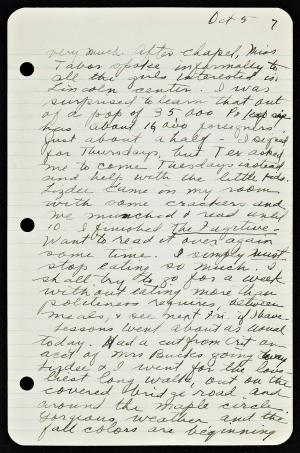 Oct 5 7
very much. After chapel, Miss
Tabor spoke informally to
all the girls interested in
Lincoln Center. I was
surprised to learn that out
of a pop of 35,000 Po'keepsie
has about 16,000 foreigners.
Just about a half. I signed
for Thursdays but Tex asked
me to come Tuesdays instead
and help with the little kids.
Lizdee came in my room
with some crackers and
we munched & read until
10. I finished The Fugitive.
Want to read it over again
some time. I simply must
stop eating so much. I
shall try to go for a week
without eating more than
politeness requires, between
meals, & see next Fri. if I have.
Lessons went about as usual
today. Had a cut from Crit on
acct of Mrs Bucks going away
Lizdee & I went for the love-
liest long walk, out on the
covered bridge road and
around the Maple circle.
Gorgeous weather and the
fall colors are beginning